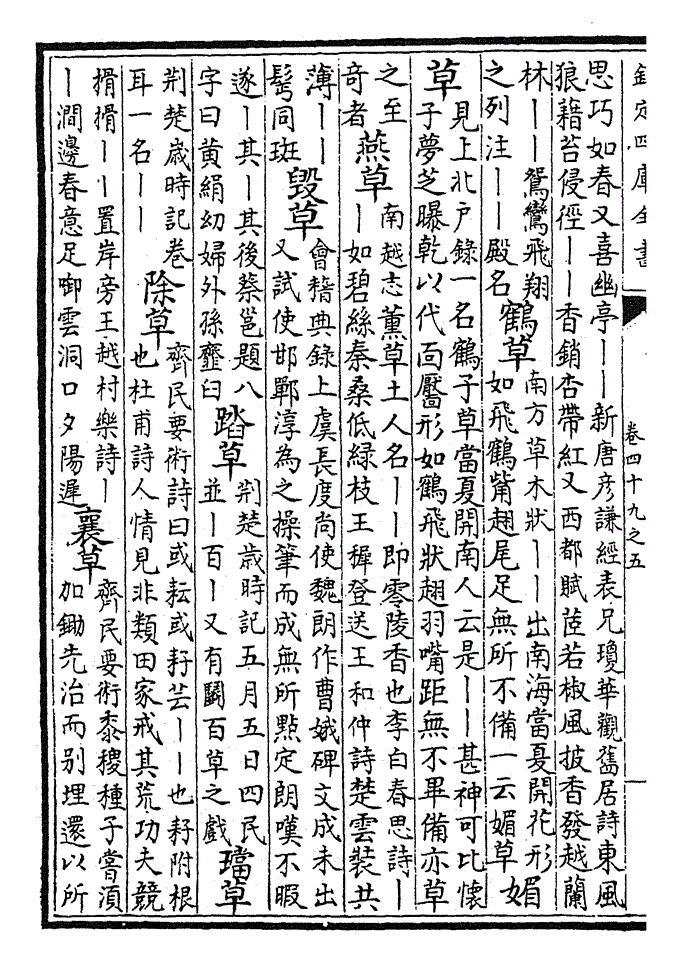 欽定四庫全書 卷四十九之五
思巧如春又喜幽亭——新唐彦謙經表兄瓊華觀舊居詩東風
狼籍苔侵徑——香銷杏帶紅又西都賦茝若椒風披香發越蘭
林——鴛鸞飛翔
之列注——殿名
鶴草
南方草木狀——出南海當夏開花形
如飛鶴觜翅尾足無所不備一云媚草
媚草
見上北戶錄一名鶴子草當夏開南人云是——甚神可比懷
子夢芝曝乾以代面靨形如鶴飛狀翅羽嘴距無不畢備亦草
之至
奇者
燕草
南越志薰草土人名——即零陵香也李白春思詩—
—如碧絲秦桑低緑枝王穉登送王和仲詩楚雲裝共
薄——
髩同斑
毁草
會稽典錄上虞長度尚使魏朗作曹娥碑文成未出
又試使邯鄲淳為之操筆而成無所點定朗嘆不暇
遂—其—其後蔡邕題八
字曰黄絹幼婦外孫虀臼
踏草
荆楚歲時記五月五日四民
並—百—又有鬭百草之戲
璫草
荆楚歲時記卷
耳一名——
除草
齊民要術詩曰或耘或耔芸——也耔附根
也杜甫詩人情見非類田家戒其荒功夫競
搰搰——置岸旁王越村樂詩—
—澗邊春意足卸雲洞口夕陽遲
襄草
齊民要術黍稷種子嘗湏
加鋤先治而別埋還以所